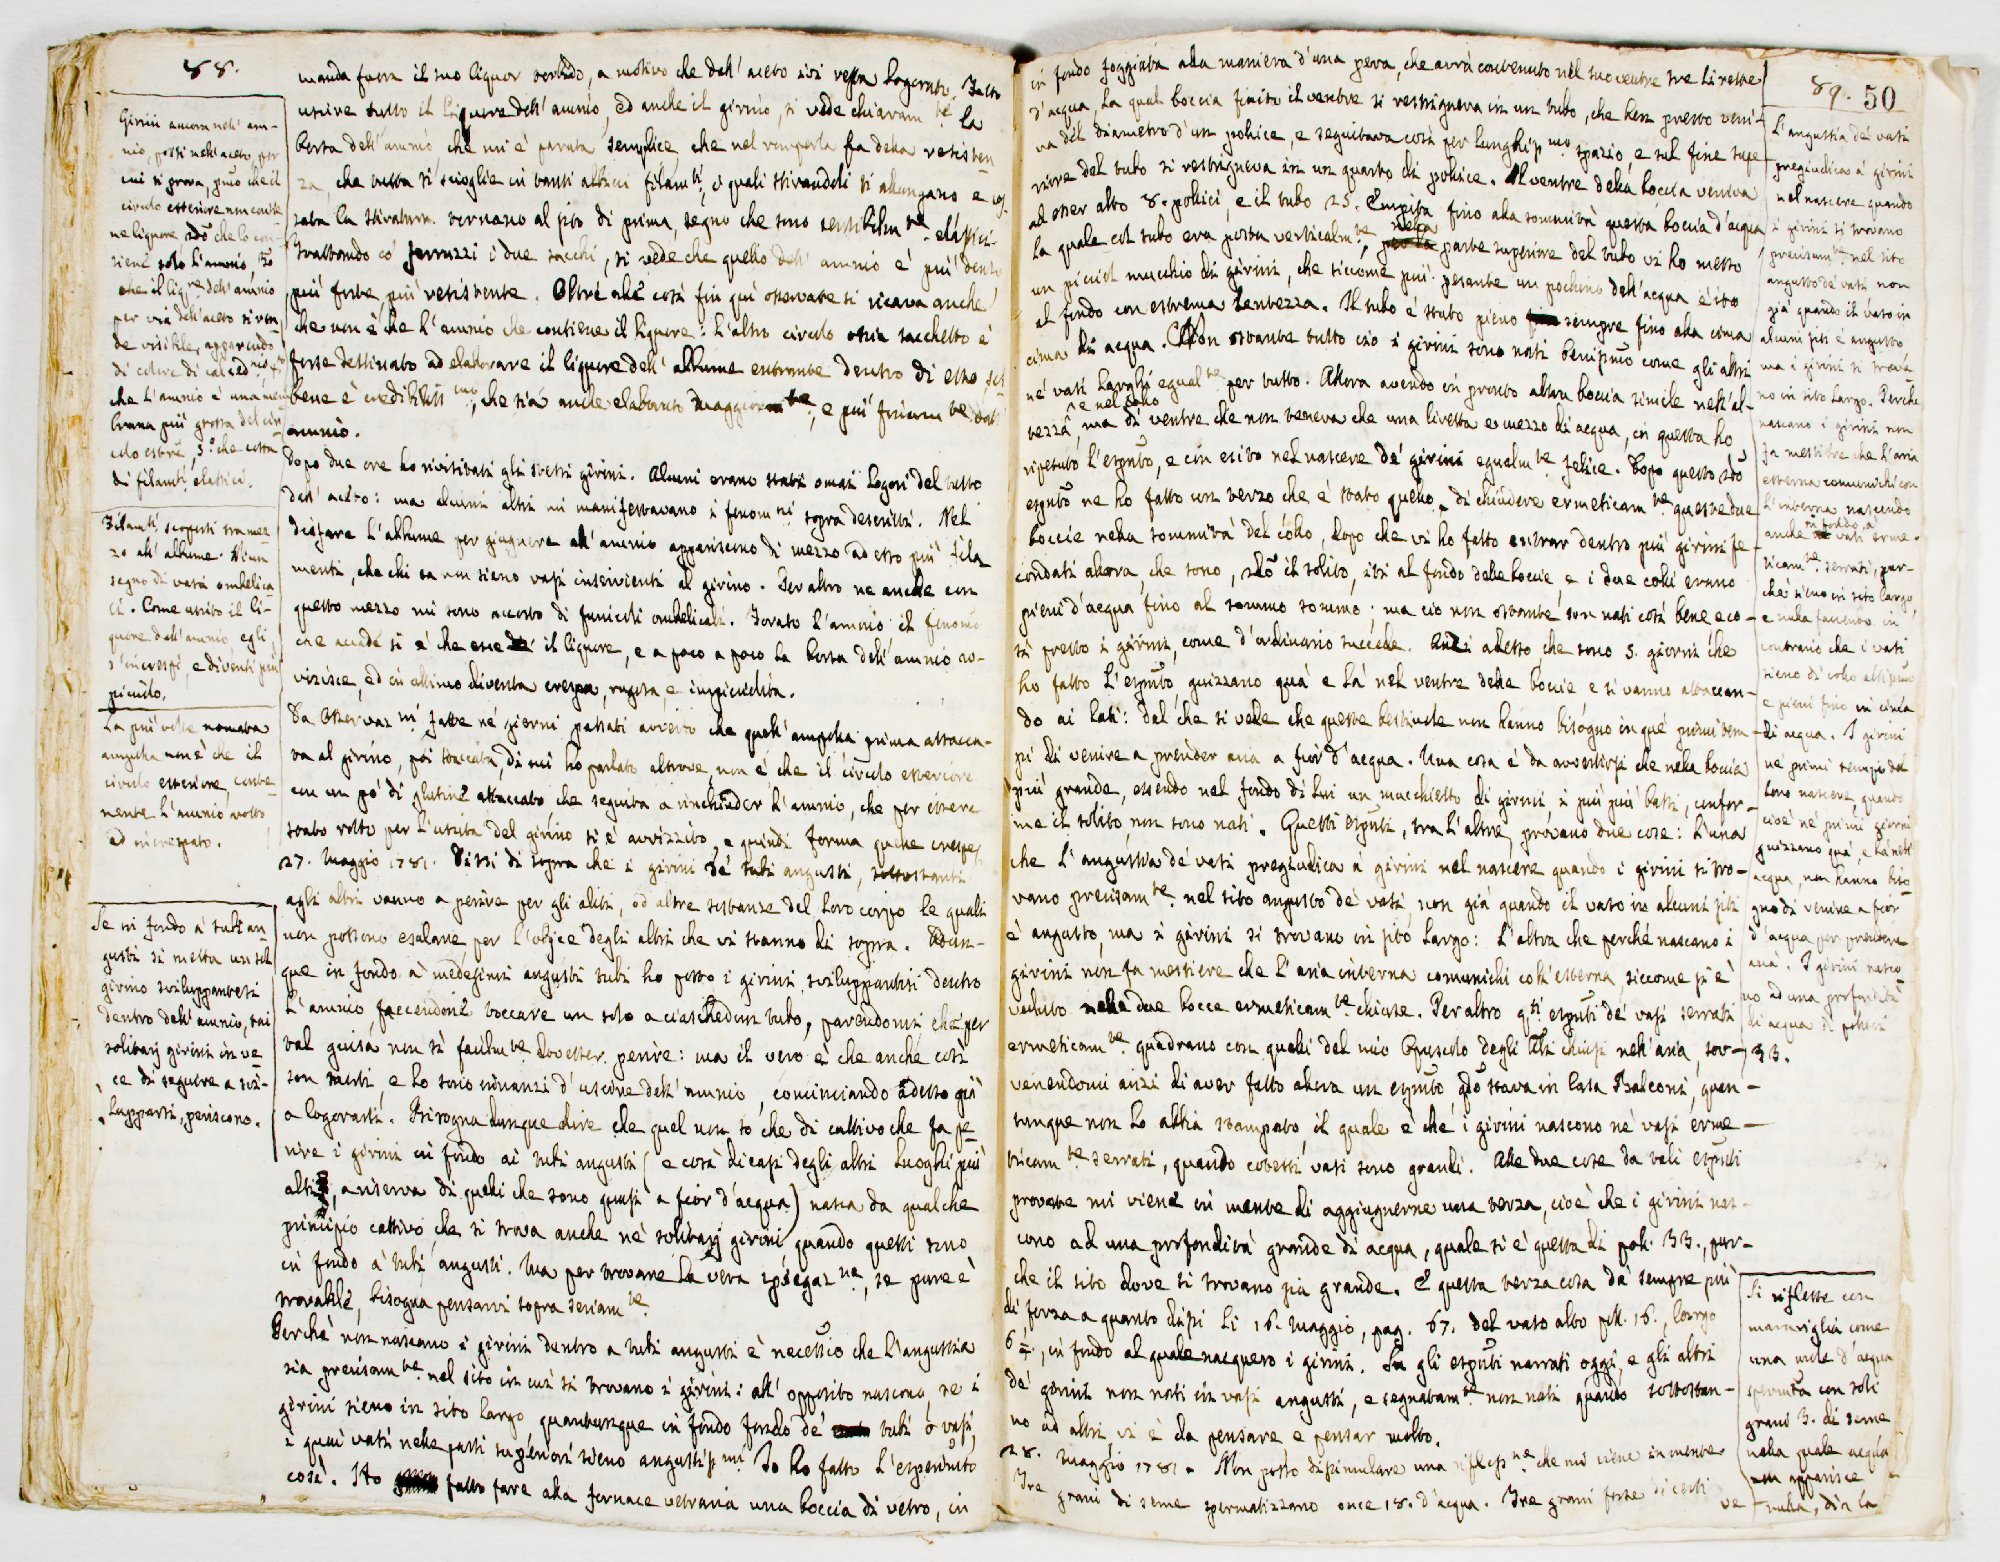 88.
manda fuori il suo liquor torbido, a motivo che dall' aceto ivi resta logorato. Fatto
uscire tutto il liquore dell' amnio, ed anche il girino, si vede chiaram.te la
borsa dell' amnio, che mi è paruta semplice, che nel romperla fa della resisten
za, che tutta si scioglie in tanti altrui filam.ti, i quali stirandoli si allungano e
la stiratura tornano al sito di prima, segno che sono sensibilm.te elastici.
Trattando co' ferruzzi i due sacchi, si vede che quello dell' amnio è più denso
più forte, più resistente. Oltre alle cose fin quì osservate si ricava anche
che non è che l' amnio che contiene il liquore: l' altro circolo ossia sacchetto è
forse destinato ad elaborare il liquore dell' albume entrante dentro di esso,
bene è credibiliss.mo, che sia anche elaborato maggiorm.te, e più finam.te dall'
amnio.
Dopo due ore ho rivisitati gli stessi girini. Alcuni erano stati omai logori del tutto
dall' aceto: ma alcuni altri mi manifestavano i fenom.ni sopra descritti. Nel
disfare l' albume per giugnere all' amnio appariscono di mezzo ad esso più fila
menti, che chi sa non sieno vasi inservienti al girino. Per altro ne anche con
questo mezzo mi sono accorto di funicoli ombelicali. Forato l' amnio il fenome
che accade si è che esce il liquore, e a poco a poco la borsa dell' amnio av-
vizisce, ed in ultimo diventa crespa, rugosa, e impiciolita.
Da osservaz.ni fatte ne' giorni passati avverto che quell' ampolla prima attacca-
ta al girino, poi staccata, di cui ho parlato altrove, non è che il circolo esteriore
con un po' di glutine attaccato che seguita a rinchiuder l' amnio, che per essere
stato rotto per l' uscita del girino si è avvizzito, e quindi forma quelle crespe
27. Maggio 1781. Dissi di sopra che i girini de' tubi angusti, sottostanti
agli altri vanno a perire per gli aliti, od altre sostanze del loro corpo le quali
non possono esalare per l' obice degli altri che vi stanno di sopra. Adun-
que in fondo a' medesimi angusti tubi ho posto i girini sviluppantisi dentro
l' amnio, faccendone toccare un solo a ciaschedun tubo, parendomi che per
tal guisa non sì facilm.te dovesser perire: ma il vero è che anche così
son morti, e lo sono innanzi d' uscire dell' amnio, cominciando adesso già
a logorarsi. Bisogna dunque dire che quel non so che di cattivo che fa pe
rire i girini in fondo ai tubi angusti (e così dicasi degli altri luoghi più
alti, a riserva di quelli che sono quasi a fior d' acqua) nasca da qualche
principio cattivo che si trova anche ne' solitarj girini, quando questi sono
in fondo a' tubi angusti. Ma per trovare la vera spiegaz.ne, se pure è
trovabile, bisogna pensarvi sopra seriam.te.
Perchè non nascano i girini dentro a tubi angusti è necess.o che l' angustia
sia precisam.te nel sito in cui si trovano i girini: all' opposito nascono, se i
girini sieno in sito largo quantunque in fondo fondo de' tubi o vasi,
i quai vasi nelle parti superiori sieno angustiss.mi. Io ho fatto l' esperim.to
così. Ho fatto fare alla fornace vetraria una boccia di vetro, in
Girini ancora nell' am-
nio, posti nell' aceto, per
cui si prova, p.mo che il
circolo esteriore non contie
ne liquore, 2.do che lo con
tiene solo l' amnio, 3.zo
che il liq.re dell' amnio
per via dell' aceto si ren
de visibile, apparendo
di colore di calcedonio, 4.to
che l' amnio è una mem
brana più grossa del cir
colo ester.e, 5.o che costa
di filam.ti elastici.
Filam.ti scoperti in mez
zo all' albume. Niun
segno di vasi ombelica
li. Come uscito il li-
quore dell' amnio egli
s' increspi, e diventi più
piciolo.
La più volte nomata
ampolla non è che il
circolo esteriore, conte
nente l' amnio rotto
ed increspato.
Se in fondo a' tubi an
gusti si metta un sol
girino sviluppantesi
dentro dell' amnio, tai
solitarj girini in ve
ce di seguire a svi-
lupparsi, periscono.
89. 50
in fondo foggiata alla maniera d' una pera, che avrà contenuto nel suo ventre tre lirette
d' acqua, la qual boccia finito il ventre si restrigneva in un tubo, che ben presto veni-
va del diametro d' un pollice, e seguitava così per lunghiss.mo spazio, e sul fine supe
riore del tubo si restrigneva in un quarto di pollice. Il ventre della boccia veniva
ad esser alto 8. pollici, e il tubo 25. Empita fino alla sommità questa boccia d' acqua
la quale col tubo era posta verticalm.te, nella parte superiore del tubo vi ho messo
un piciol mucchio di girini, che siccome più pesante un pochino dell' acqua è ito
al fondo con estrema lentezza. Il tubo è stato pieno sempre fino alla cima
cima di acqua. Non ostante tutto ciò i girini sono nati beniss.mo come gli altri
ne' vasi larghi egualm.te per tutto. Allora avendo in pronto altra boccia simile nell' al-
tezza, e nel collo ma di ventre che non teneva che una liretta e mezzo di acqua, in questa ho
ripetuto l' esp.to, e con esito nel nascere de' girini egualm.te felice. Dopo questo 2.do
esp.to ne ho fatto un terzo che è stato quello, di chiudere ermeticam.te queste due
boccie nella sommità del collo, dopo che vi ho fatto entrar dentro più girini fe-
condati allora, che sono, 2.do il solito, iti al fondo delle boccie, e i due colli erano
pieni d' acqua fino al sommo sommo: ma ciò non ostante son nati così bene e co-
sì presto i girini, come d' ordinario succede. Anzi adesso, che sono 5. giorni che
ho fatto l' esp.to, guizzano quà e là nel ventre delle boccie e si vanno attaccan-
do ai lati: dal che si vede che queste bestiuole non hanno bisogno in que' primi tem-
pi di venire a prender aria a fior d' acqua. Una cosa è da avvertirsi che nella boccia
più grande, essendo nel fondo di lui un mucchietto di girini, i più più bassi, confor-
me il solito, non sono nati. Questi esp.ti, tra l' altre, provano due cose: l' una
che l' angustia de' vasi pregiudica a' girini nel nascere quando i girini si tro-
vano precisam.te nel sito angusto de' vasi, non già quando il vaso in alcuni siti
è angusto, ma i girini si trovano in sito largo: l' altra che perchè nascano i
girini non fa mestiere che l' aria interna comunichi coll' esterna, siccome si è
veduto nelle due bocce ermeticam.te chiuse. Per altro q.sti esp.ti de' vasi serrati
ermeticam.te quadrano con quelli del mio Opuscolo degli Ani. chiusi nell' aria, sov-
venendomi anzi di aver fatto allora un esp.to q.do stava in Casa Balconi, quan-
tunque non lo abbia stampato, il quale è che i girini nascono ne' vasi erme-
ticam.te serrati, quando cotesti vasi sono grandi. Alle due cose da tali esp.ti
provate mi viene in mente di aggiugnerne una terza, cioè che i girini nas-
cono ad una profondità grande di acqua, quale si è questa di poll. 33., pur-
che il sito dove si trovano sia grande. E questa terza cosa dà sempre più
di forza a quanto dissi li 16. Maggio, pag. 67. del vaso alto poll. 16., largo
6 ½., in fondo al quale nacquero i girini. Fra gli esp.ti narrati oggi, e gli altri
de' girini non nati in vasi angusti, e segnatam.te non nati quando sottostan-
no ad altri vi è da pensare e pensar molto.
28. Maggio 1781. Non posso dissimulare una rifless.ne che mi viene in mente.
Tre grani di seme spermatizzano once 18. d' acqua. Tre grani forse di certi
ve
L' angustia de' vasi
pregiudica a' girini
nel nascere quando
i girini si trovano
precisam.te nel sito
angusto de' vasi non
già quando il vaso in
alcuni siti è angusto
ma i girini si trova-
no in sito largo. Perchè
nascano i girini non
fa mestiere che l' aria
esterna comunichi con
l' interna nascendo
anche in fondo a' vasi erme-
ticam.te serrati, pur-
chè sieno in sito largo,
e nulla facendo in
contrario che i vasi
sieno di collo altiss.mo
e pieni fino in cima
di acqua. I girini
ne' primi tempi del
loro nascere, quando
cioè ne' primi giorni
guizzano quà, e là nell'
acqua, non hanno biso
gno di venire a fior
d' acqua per prendere
aria. I girini nasco
no ad una profondità
di acqua di pollici
33.
Si riflette con
maraviglia come
una mole d' acqua
spermata con soli
grani 3. di seme
nella quale acqua
non apparisce
nulla, dia la